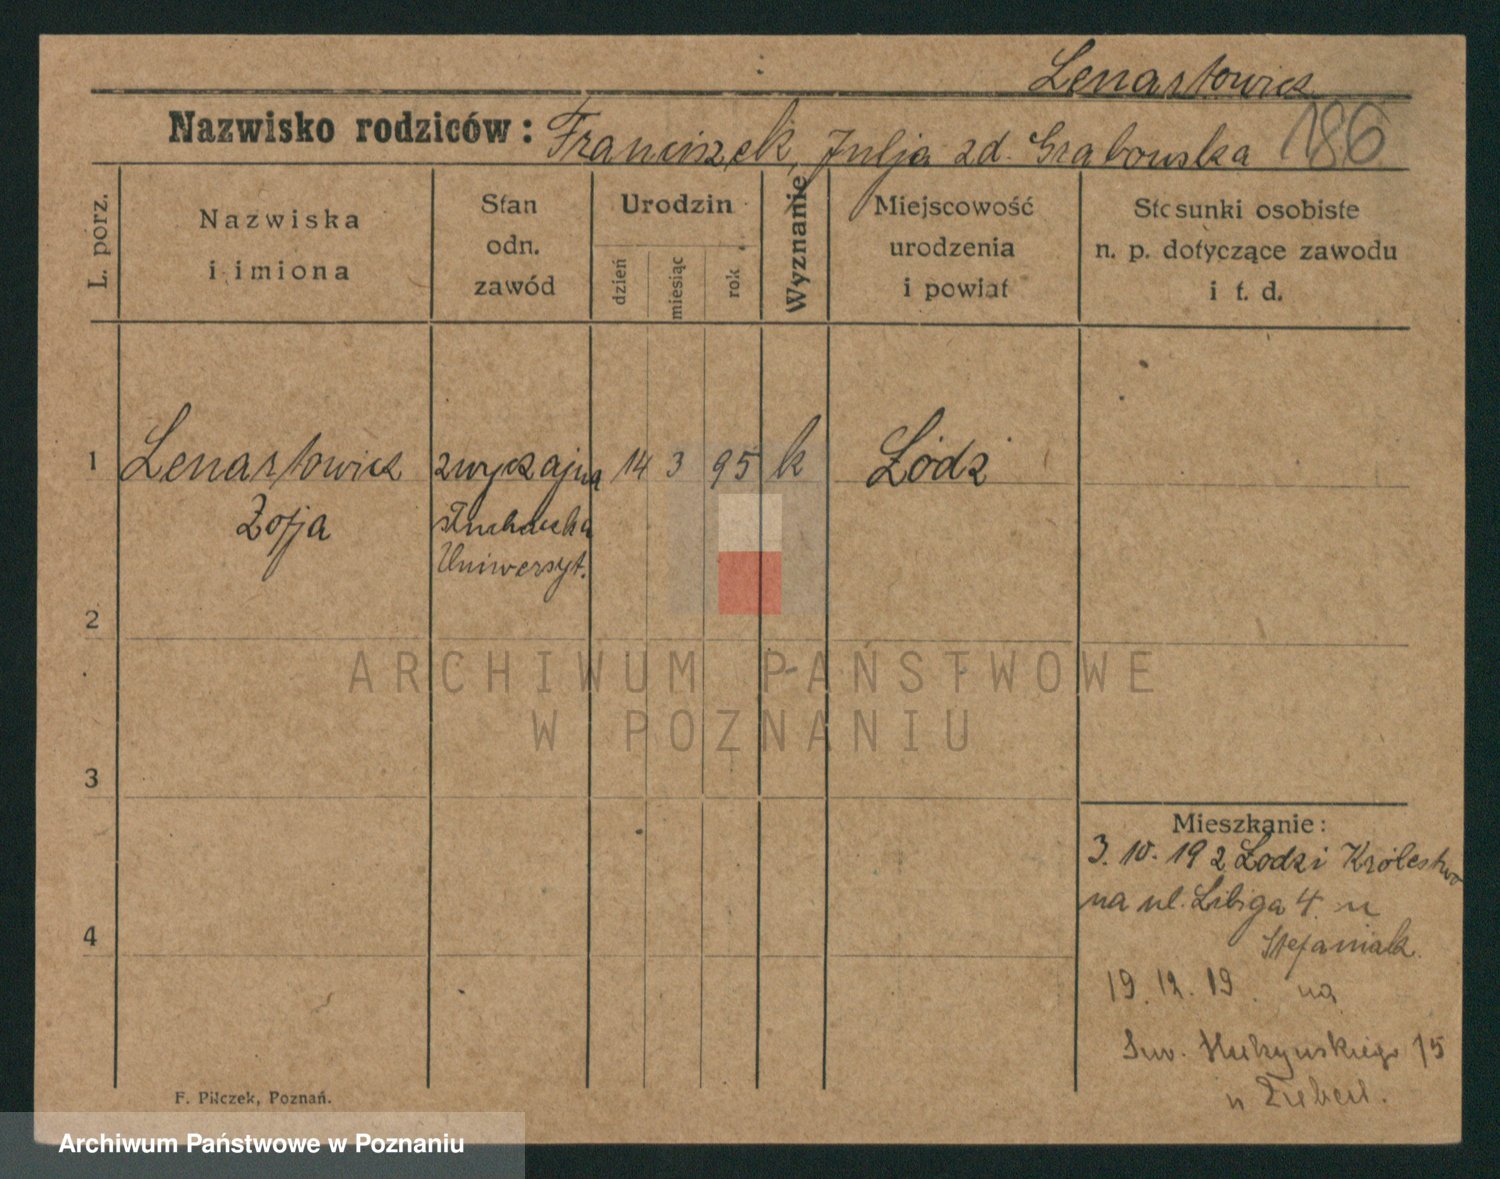 Lenartowicz
Nazwisko rodziców: Franciszek, Julja zd. Grabowska 186
L. porz.
Nazwiska
i imiona
Stan
odn.
zawód
Urodzin
dzień
miesiąc
rok
Wyznanie
Miejscowość
urodzenia
i powiat
Stosunki osobiste
n. p. dotyczące zawodu
i t. d.
1 Lenartowicz zwyczajna 14 3 95 k Łódź
Zofja słuchaczka
Uniwersyt.
2
ARCHIWUM PAŃSTWOWE
W POZNANIU
3
Mieszkanie:
3. 10. 19 z Łodzi Królestwo
na ul. Libiga 4. u
Stefaniak.
4
19. 12. 19. na
15
u
F. Pilczek, Poznań.
Archiwum Państwowe w Poznaniu